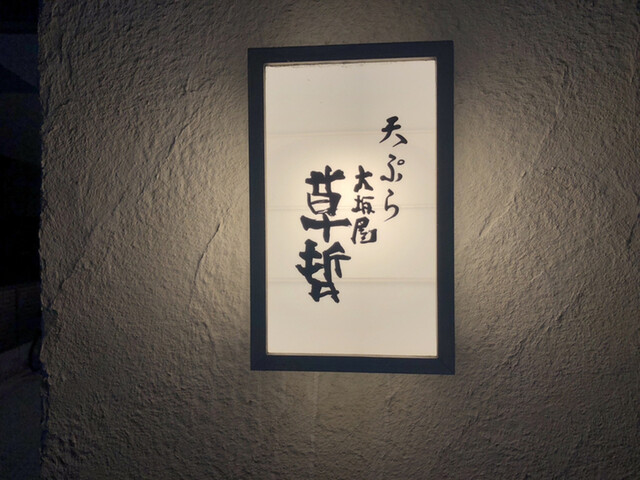 天ぷら
大坂屋
草哲